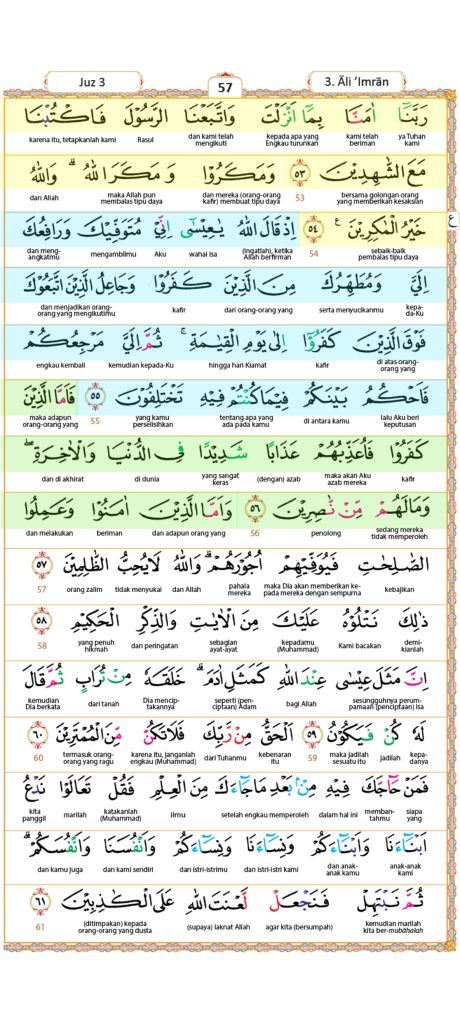 Juz 3
57
3. Āli ‘Imrān
رَبَّنَآ اٰمَنَّا بِمَآ اَنْزَلْتَ وَاتَّبَعْنَا الرَّسُوْلَ فَاكْتُبْنَا
ya Tuhan kami kami telah beriman kepada apa yang Engkau turunkan dan kami telah mengikuti Rasul karena itu, tetapkanlah kami
مَعَ الشّٰهِدِيْنَ ٥٣ وَمَكَرُوْا وَمَكَرَ اللّٰهُ ۗ وَاللّٰهُ
bersama golongan orang yang memberikan kesaksian 53 dan mereka (orang-orang kafir) membuat tipu daya maka Allah pun membalas tipu daya dan Allah
خَيْرُ الْمٰكِرِيْنَ ࣖ ٥٤ اِذْ قَالَ اللّٰهُ يٰعِيْسٰٓى اِنِّيْ مُتَوَفِّيْكَ وَرَافِعُكَ
ع
sebaik-baik pembalas tipu daya 54 (ingatlah), ketika Allah berfirman wahai Isa Aku mengambilmu dan meng-angkatmu
اِلَيَّ وَمُطَهِّرُكَ مِنَ الَّذِيْنَ كَفَرُوْا وَجَاعِلُ الَّذِيْنَ اتَّبَعُوْكَ
kepa-da-Ku serta menyucikanmu dari orang-orang yang kafir dan menjadikan orang-orang yang mengikutimu
فَوْقَ الَّذِيْنَ كَفَرُوْٓا اِلٰى يَوْمِ الْقِيٰمَةِ ۚ ثُمَّ اِلَيَّ مَرْجِعُكُمْ
di atas orang-orang yang kafir hingga hari Kiamat kemudian kepada-Ku engkau kembali
فَاَحْكُمُ بَيْنَكُمْ فِيْمَا كُنْتُمْ فِيْهِ تَخْتَلِفُوْنَ ٥٥ فَاَمَّا الَّذِيْنَ
lalu Aku beri keputusan di antara kamu tentang apa yang ada pada kamu yang kamu perselisihkan 55 maka adapun orang-orang yang
كَفَرُوْا فَاُعَذِّبُهُمْ عَذَابًا شَدِيْدًا فِى الدُّنْيَا وَالْاٰخِرَةِ ۖ
kafir maka akan Aku azab mereka (dengan) azab yang sangat keras di dunia dan di akhirat
وَمَا لَهُمْ مِّنْ نّٰصِرِيْنَ ٥٦ وَاَمَّا الَّذِيْنَ اٰمَنُوْا وَعَمِلُوا
sedang mereka tidak memperoleh penolong 56 dan adapun orang yang beriman dan melakukan
الصّٰلِحٰتِ فَيُوَفِّيْهِمْ اُجُوْرَهُمْ ۗ وَاللّٰهُ لَا يُحِبُّ الظّٰلِمِيْنَ ٥٧
kebajikan maka Dia akan memberikan ke-pada mereka dengan sempurna pahala mereka dan Allah tidak menyukai orang zalim 57
ذٰلِكَ نَتْلُوْهُ عَلَيْكَ مِنَ الْاٰيٰتِ وَالذِّكْرِ الْحَكِيْمِ ٥٨
demi-kianlah Kami bacakan kepadamu (Muhammad) sebagian ayat-ayat dan peringatan yang penuh hikmah 58
اِنَّ مَثَلَ عِيْسٰى عِنْدَ اللّٰهِ كَمَثَلِ اٰدَمَ ۗ خَلَقَهٗ مِنْ تُرَابٍ ثُمَّ قَالَ
sesungguhnya perum-pamaan (penciptaan) Isa bagi Allah seperti (pen-ciptaan) Adam Dia mencip-takannya dari tanah kemudian Dia berkata
لَهٗ كُنْ فَيَكُوْنُ ٥٩ اَلْحَقُّ مِنْ رَّبِّكَ فَلَا تَكُنْ مِّنَ الْمُمْتَرِيْنَ ٦٠
kepa-danya jadilah maka jadilah sesuatu itu 59 kebenaran itu dari Tuhanmu karena itu, janganlah engkau (Muhammad) termasuk orang-orang yang ragu 60
فَمَنْ حَاۤجَّكَ فِيْهِ مِنْۢ بَعْدِ مَا جَاۤءَكَ مِنَ الْعِلْمِ فَقُلْ تَعَالَوْا نَدْعُ
siapa yang memban-tahmu dalam hal ini setelah engkau memperoleh ilmu katakanlah (Muhammad) marilah kita panggil
اَبْنَاۤءَنَا وَاَبْنَاۤءَكُمْ وَنِسَاۤءَنَا وَنِسَاۤءَكُمْ وَاَنْفُسَنَا وَاَنْفُسَكُمْ ۗ
anak-anak kami dan anak-anak kamu dan istri-istri kami dan istri-istrimu dan kami sendiri dan kamu juga
ثُمَّ نَبْتَهِلْ فَنَجْعَلْ لَّعْنَتَ اللّٰهِ عَلَى الْكٰذِبِيْنَ ٦١
kemudian marilah kita ber-mubāhalah agar kita (bersumpah) (supaya) laknat Allah (ditimpakan) kepada orang-orang yang dusta 61